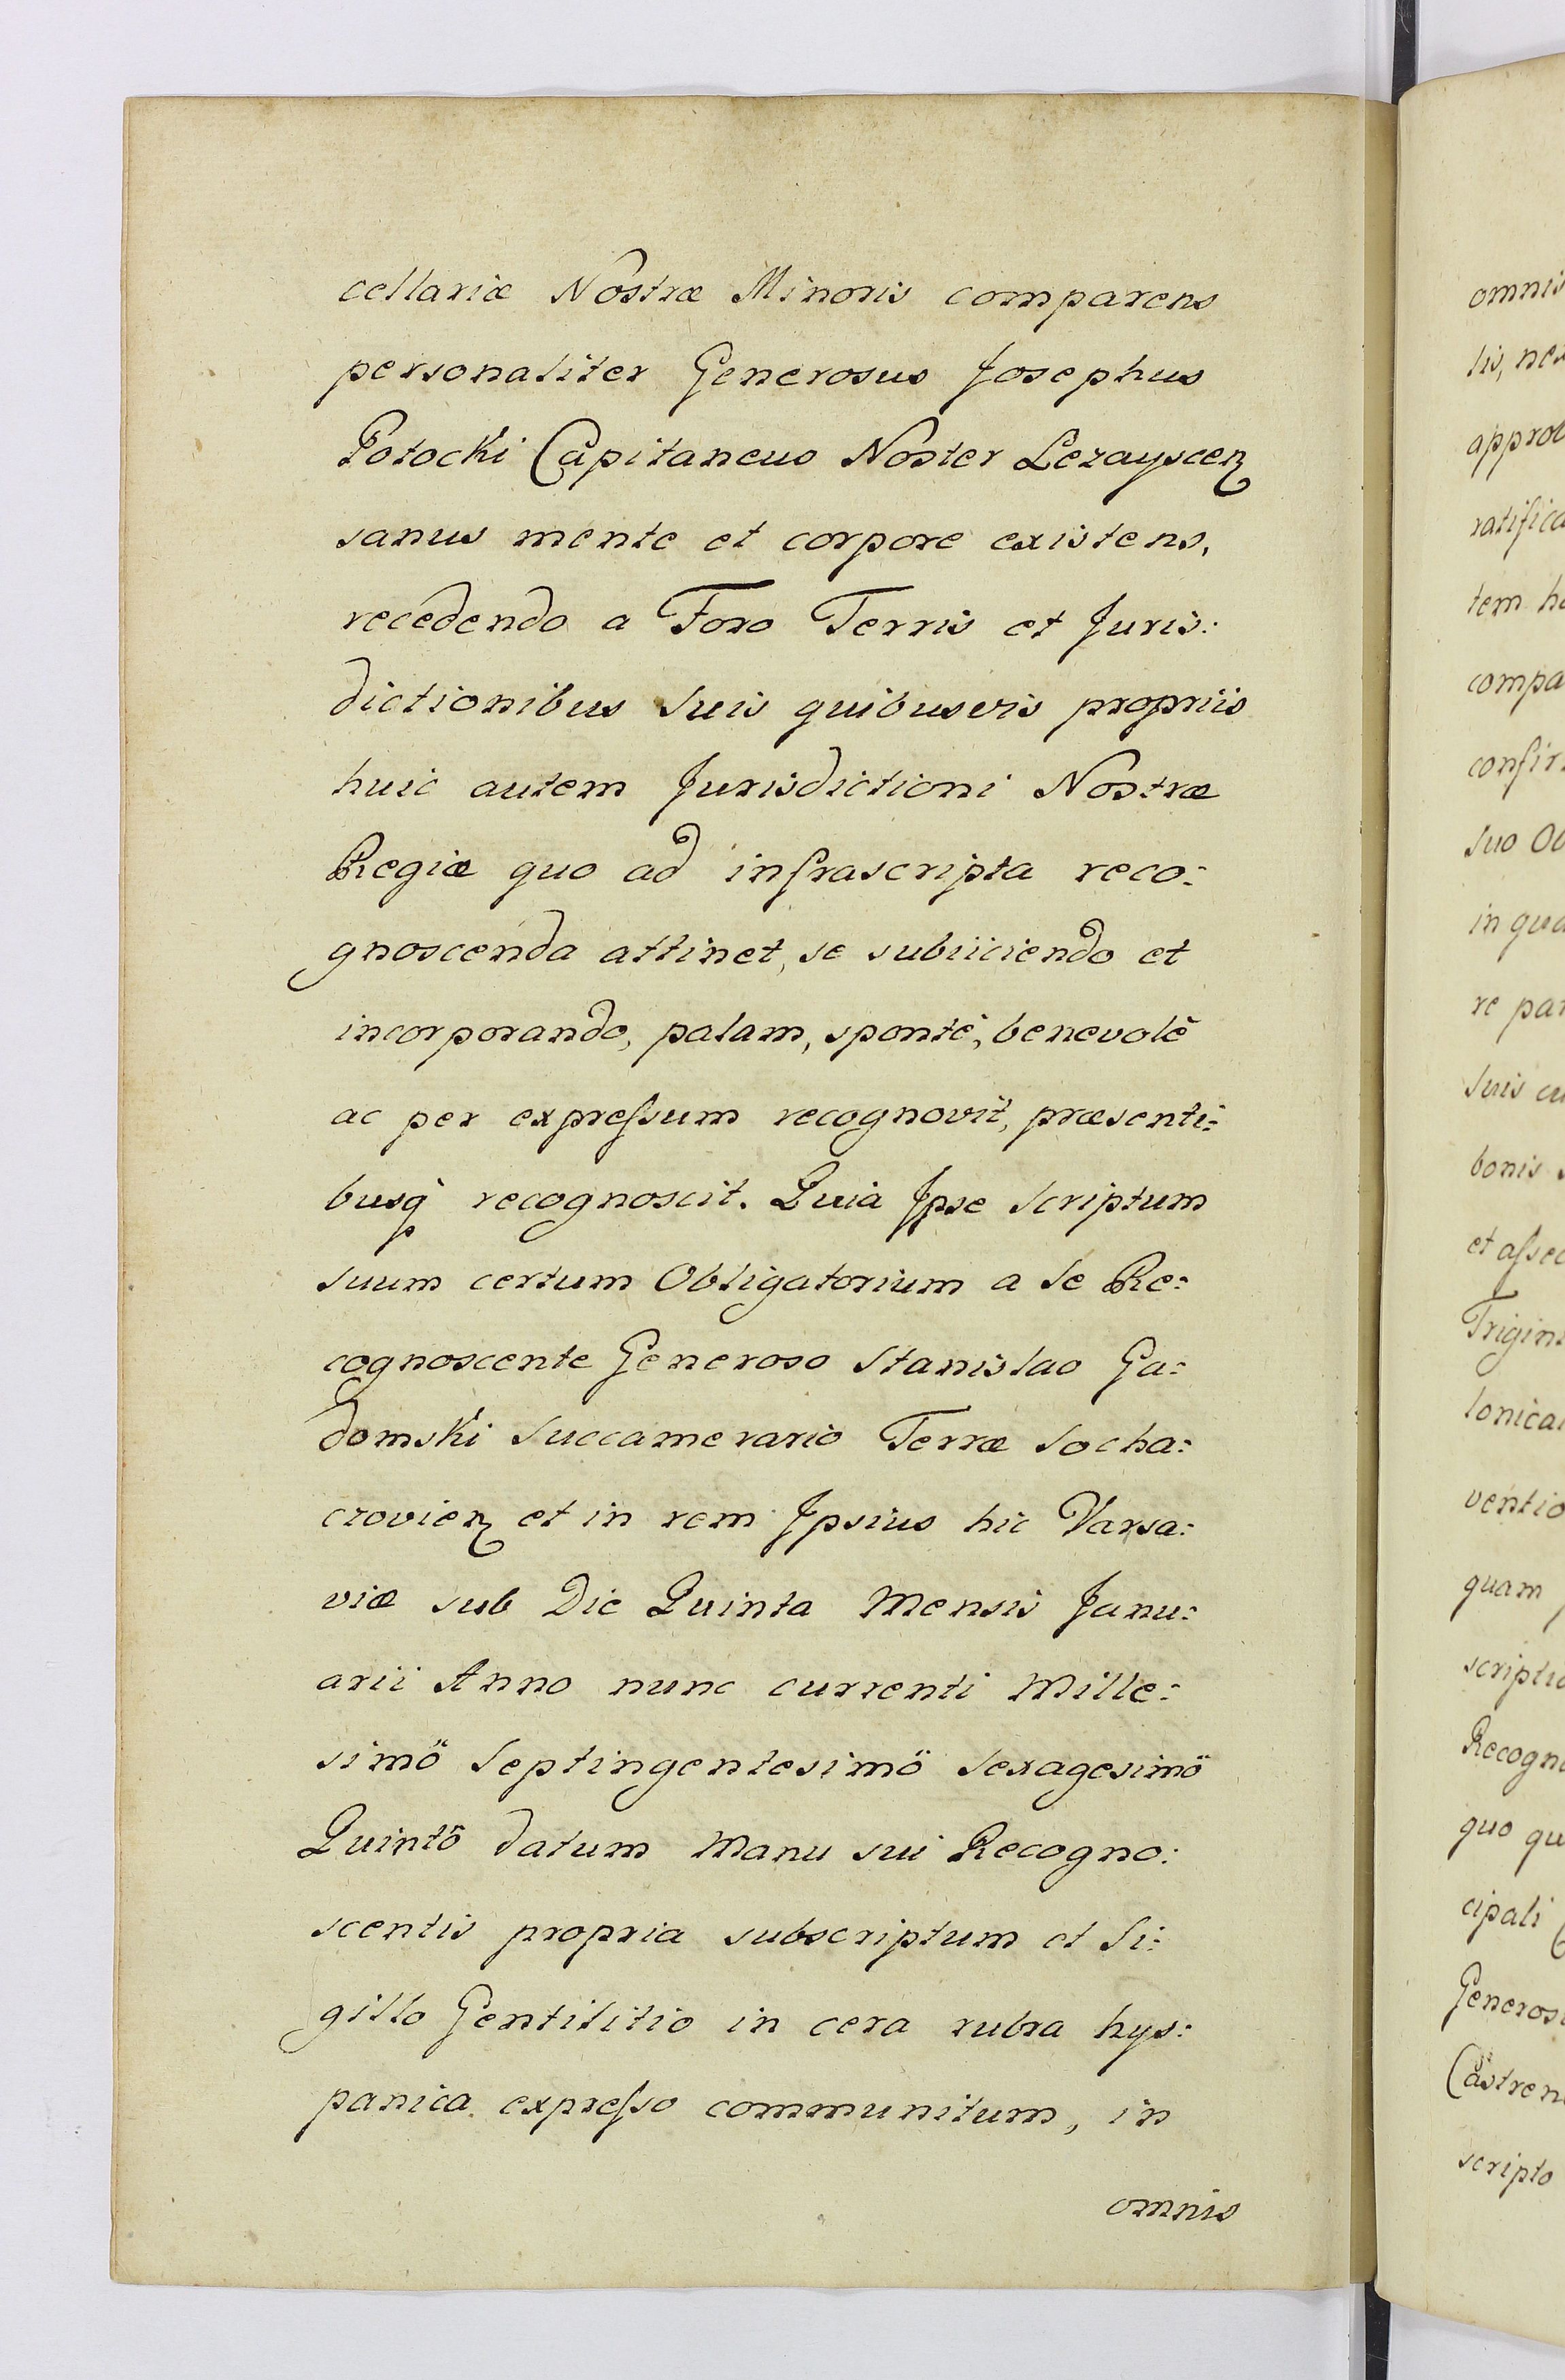 cellariæ Nostræ Minoris comparens
personaliter Generosus Josephus
Potocki Capitaneus Noster Lezayscen
sanus mente et corpore existens,
recedendo a Foro Terris et Juris:
dictionibus Suis quibusvis propriis
huic autem Jurisdictioni Nostræ
Regiæ quo ad infrascripta reco:
gnoscenda attinet, se subiiciendo et
incorporando, palam, spontè, benevolè
ac per expreſsum recognovit, præsenti:
busq recognoscit. Quia Jpse Scriptum
Suum certum Obligatorium a Se Re:
cognoscente Generoso Stanislao Ga:
domski Succamerario Terræ Socha:
czovien et in rem Jpsius hic Varsa:
viæ sub Die Quinta Mensis Janu:
arii Anno nunc currenti Mille:
simö Septingentesimö Sexagesimö
Quintö datum Manu sui Recogno:
scentis propria subscriptum et Si:
gillo Gentilitio in cera rubra hys:
panica expreſso communitum, in
omnis
omnis
lis, nex
approb
ratifica
tem ha
compa
confir:
Suo Ob
in qua
re par
Suis cu
bonis
et aſsec
Trigin
lonical
ventio
quam
scriptio
Recogno
quo qu
cipali
Generos
Castren
scripto